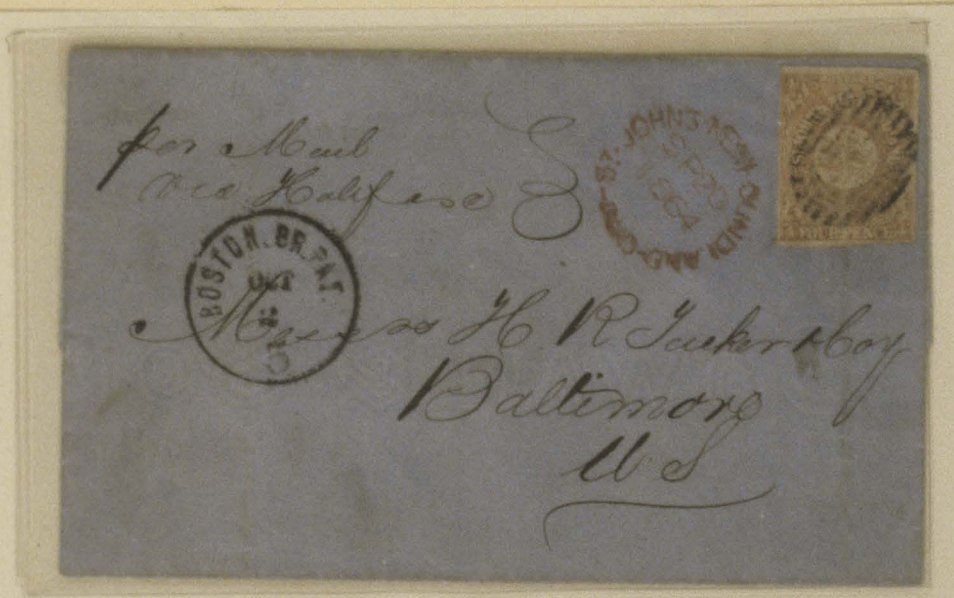 per Mail
via Halifax
ST. JOHN'S NEWFOUNDLAND
SP
1864
FOUR PENCE
BOSTON. BR. PKT.
OCT
2
5
Messrs H R Tucker & Coy
Baltimore
U S